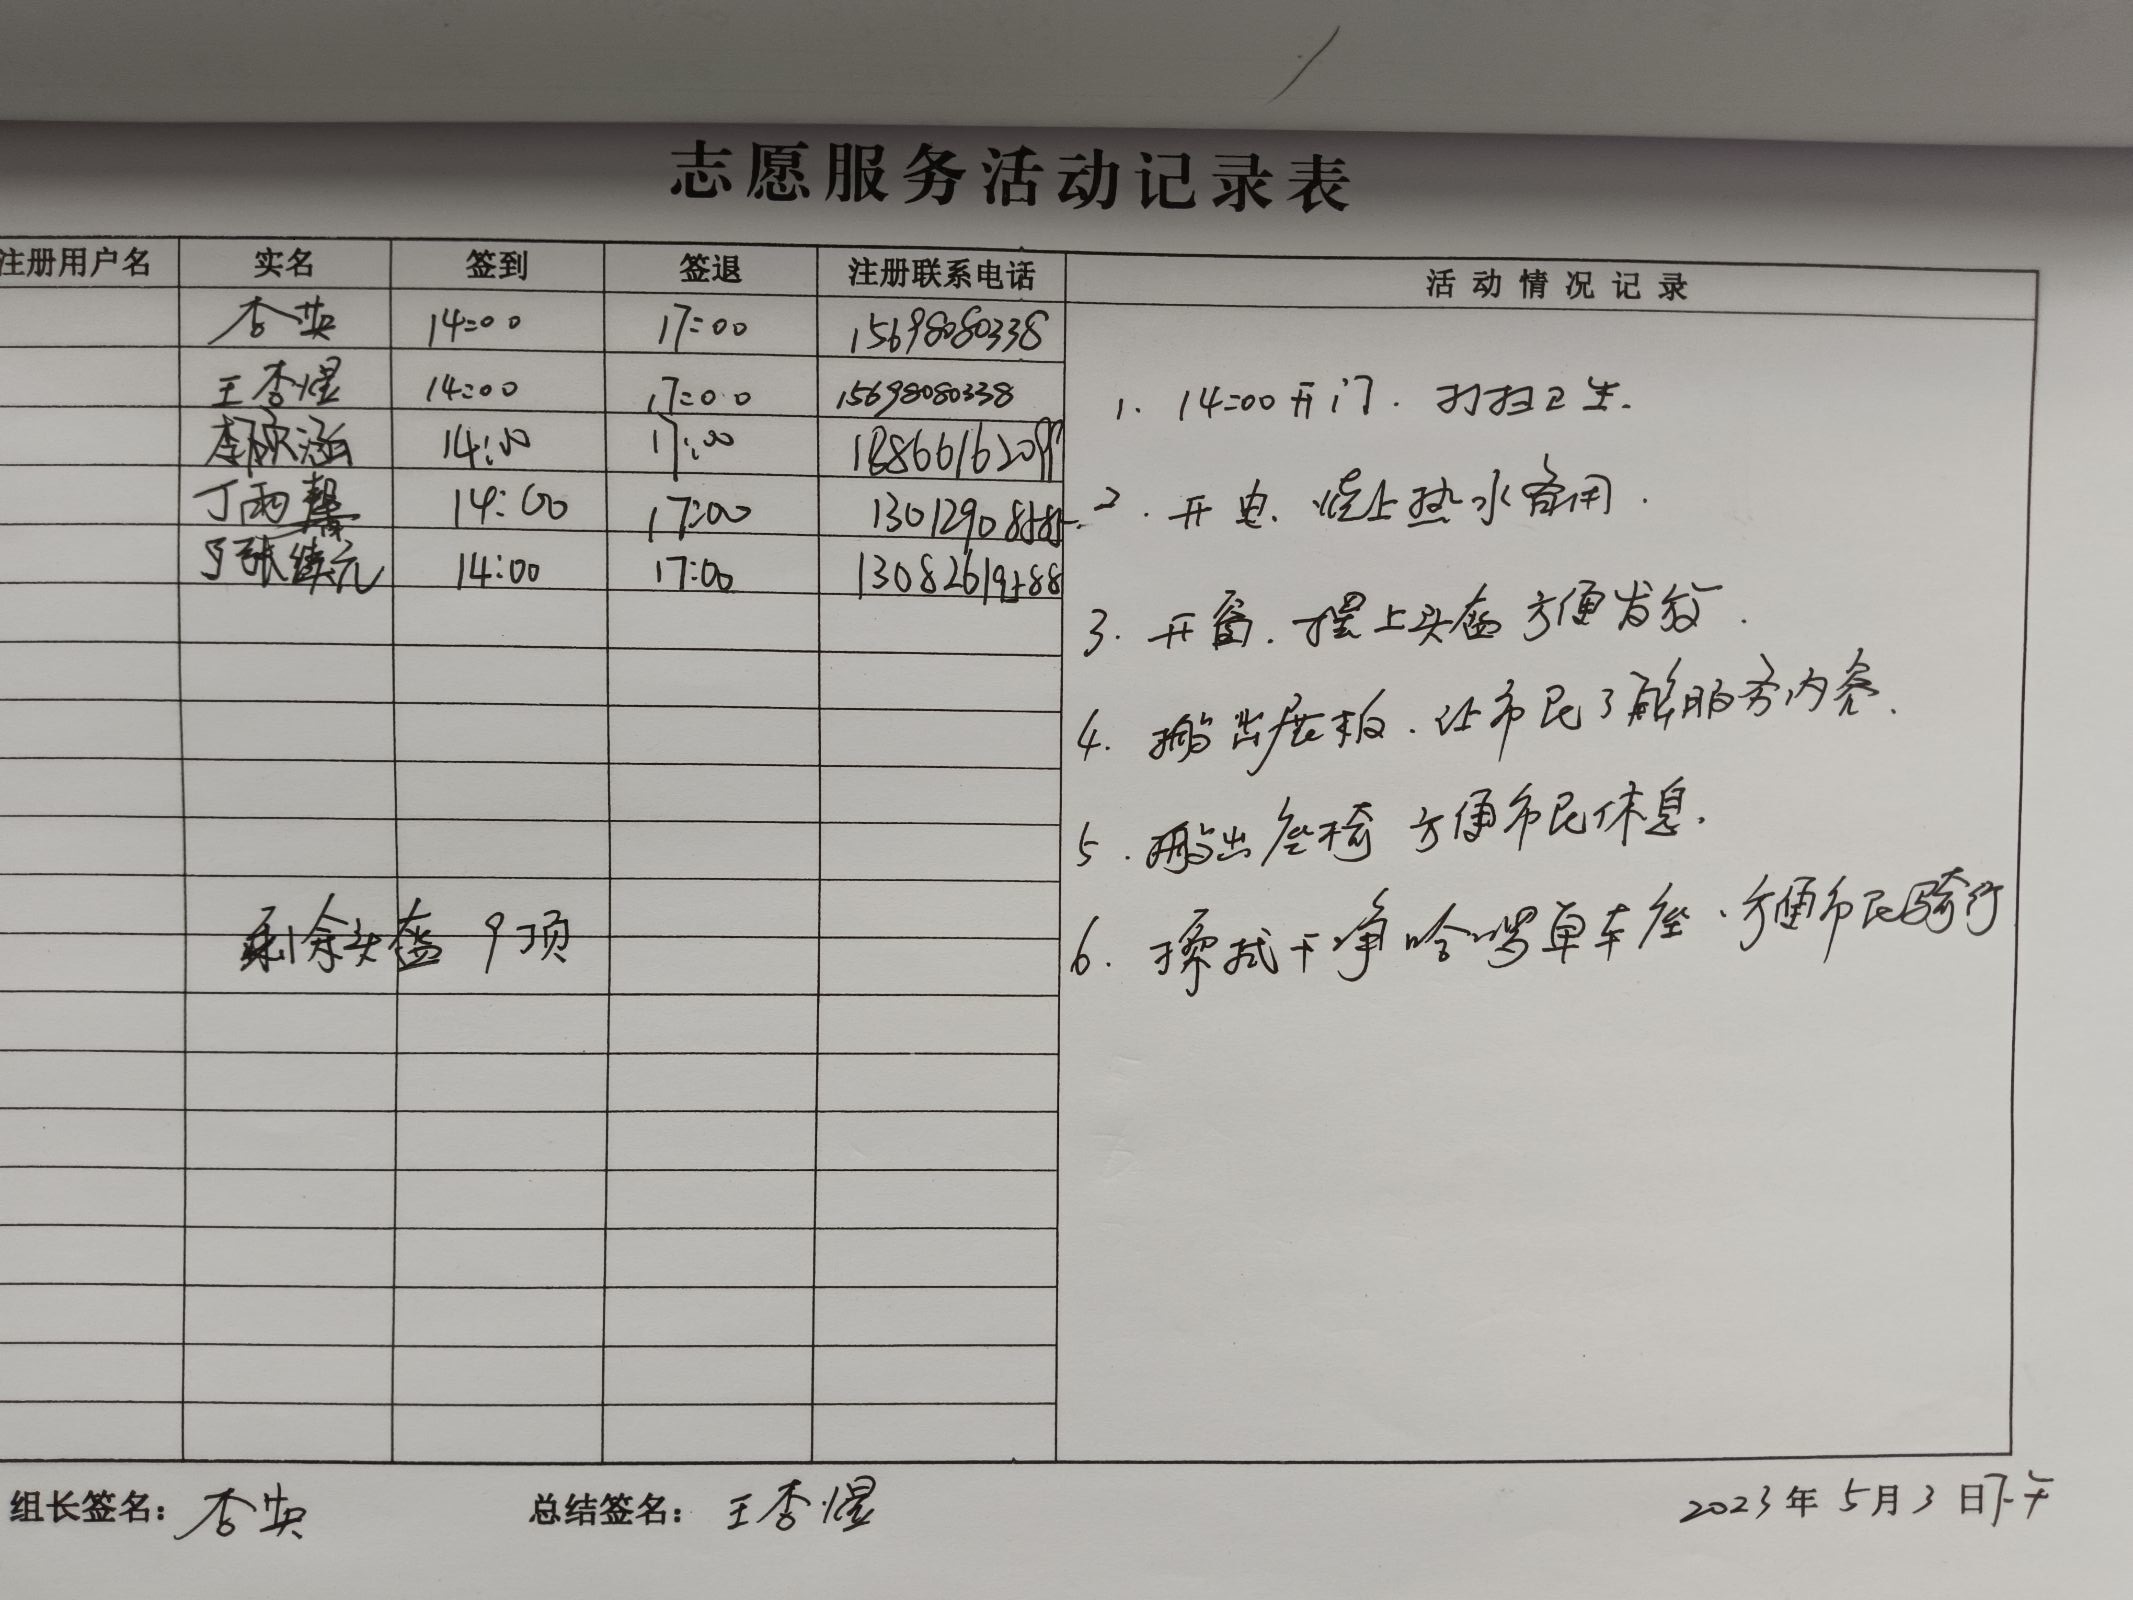 志愿服务活动记录表
注册用户名 实名 签到 签退 注册联系电话 活动情况记录
杏英 14:00 17:00 15698080338
王杏煜 14:00 17:00 15698080338
李欣涵 14:00 17:00
丁雨馨 14:00 17:00 13012908585
张继元 14:00 17:00 13082619588
剩余头盔 9顶
1. 14:00开门. 打扫卫生.
2. 开电、烧上热水备用.
3. 开窗. 摆上头盔 方便发放.
4. 搬出展板. 让市民了解服务内容.
5. 搬出座椅 方便市民休息.
6. 擦拭干净哈啰单车座、方便市民骑行
组长签名: 杏英 总结签名: 王杏煜 2023年5月3日下午